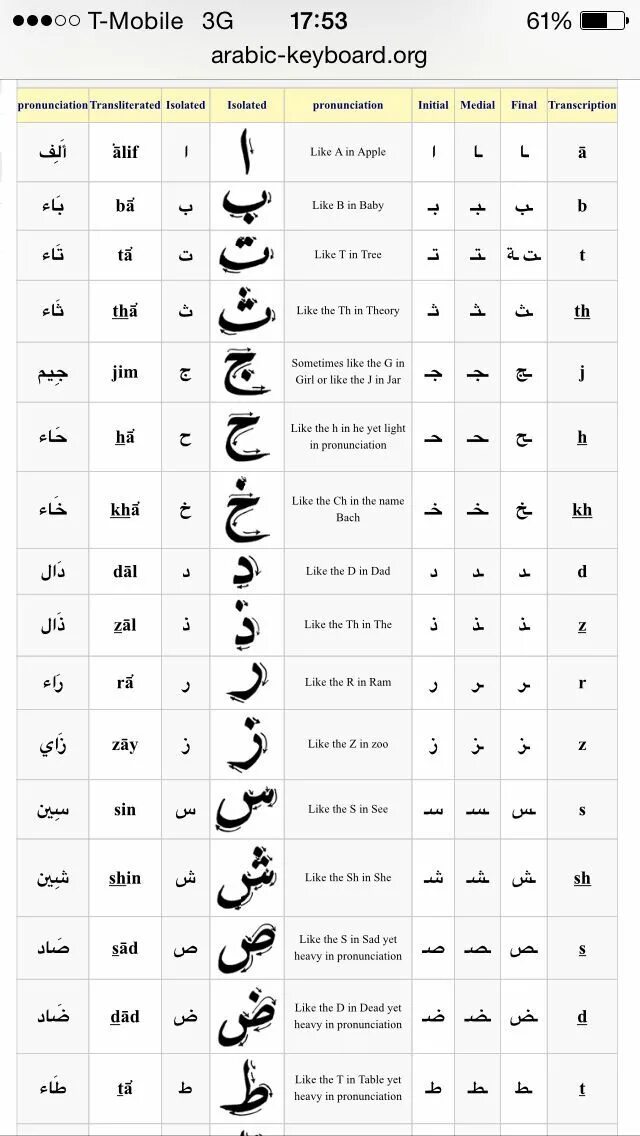 T-Mobile 3G 17:53 61%
arabic-keyboard.org
pronunciation Transliterated Isolated Isolated pronunciation Initial Medial Final Transcription
أَلِف ʾālif ا ا Like A in Apple ا ـا ـا ā
بَاء bāʾ ب ب Like B in Baby بـ ـبـ ـب b
تَاء tāʾ ت ت Like T in Tree تـ ـتـ ـت ـة t
ثَاء thāʾ ث ث Like the Th in Theory ثـ ـثـ ـث th
جِيم jim ج ج Sometimes like the G in Girl or like the J in Jar جـ ـجـ ـج j
حَاء hāʾ ح ح Like the h in he yet light in pronunciation حـ ـحـ ـح h
خَاء khāʾ خ خ Like the Ch in the name Bach خـ ـخـ ـخ kh
دَال dāl د د Like the D in Dad د ـد ـد d
ذَال zāl ذ ذ Like the Th in The ذ ـذ ـذ z
رَاء rāʾ ر ر Like the R in Ram ر ـر ـر r
زَاي zāy ز ز Like the Z in zoo ز ـز ـز z
سِين sin س س Like the S in See سـ ـسـ ـس s
شِين shin ش ش Like the Sh in She شـ ـشـ ـش sh
صَاد sād ص ص Like the S in Sad yet heavy in pronunciation صـ ـصـ ـص s
ضَاد dād ض ض Like the D in Dead yet heavy in pronunciation ضـ ـضـ ـض d
طَاء tāʾ ط ط Like the T in Table yet heavy in pronunciation طـ ـطـ ـط t